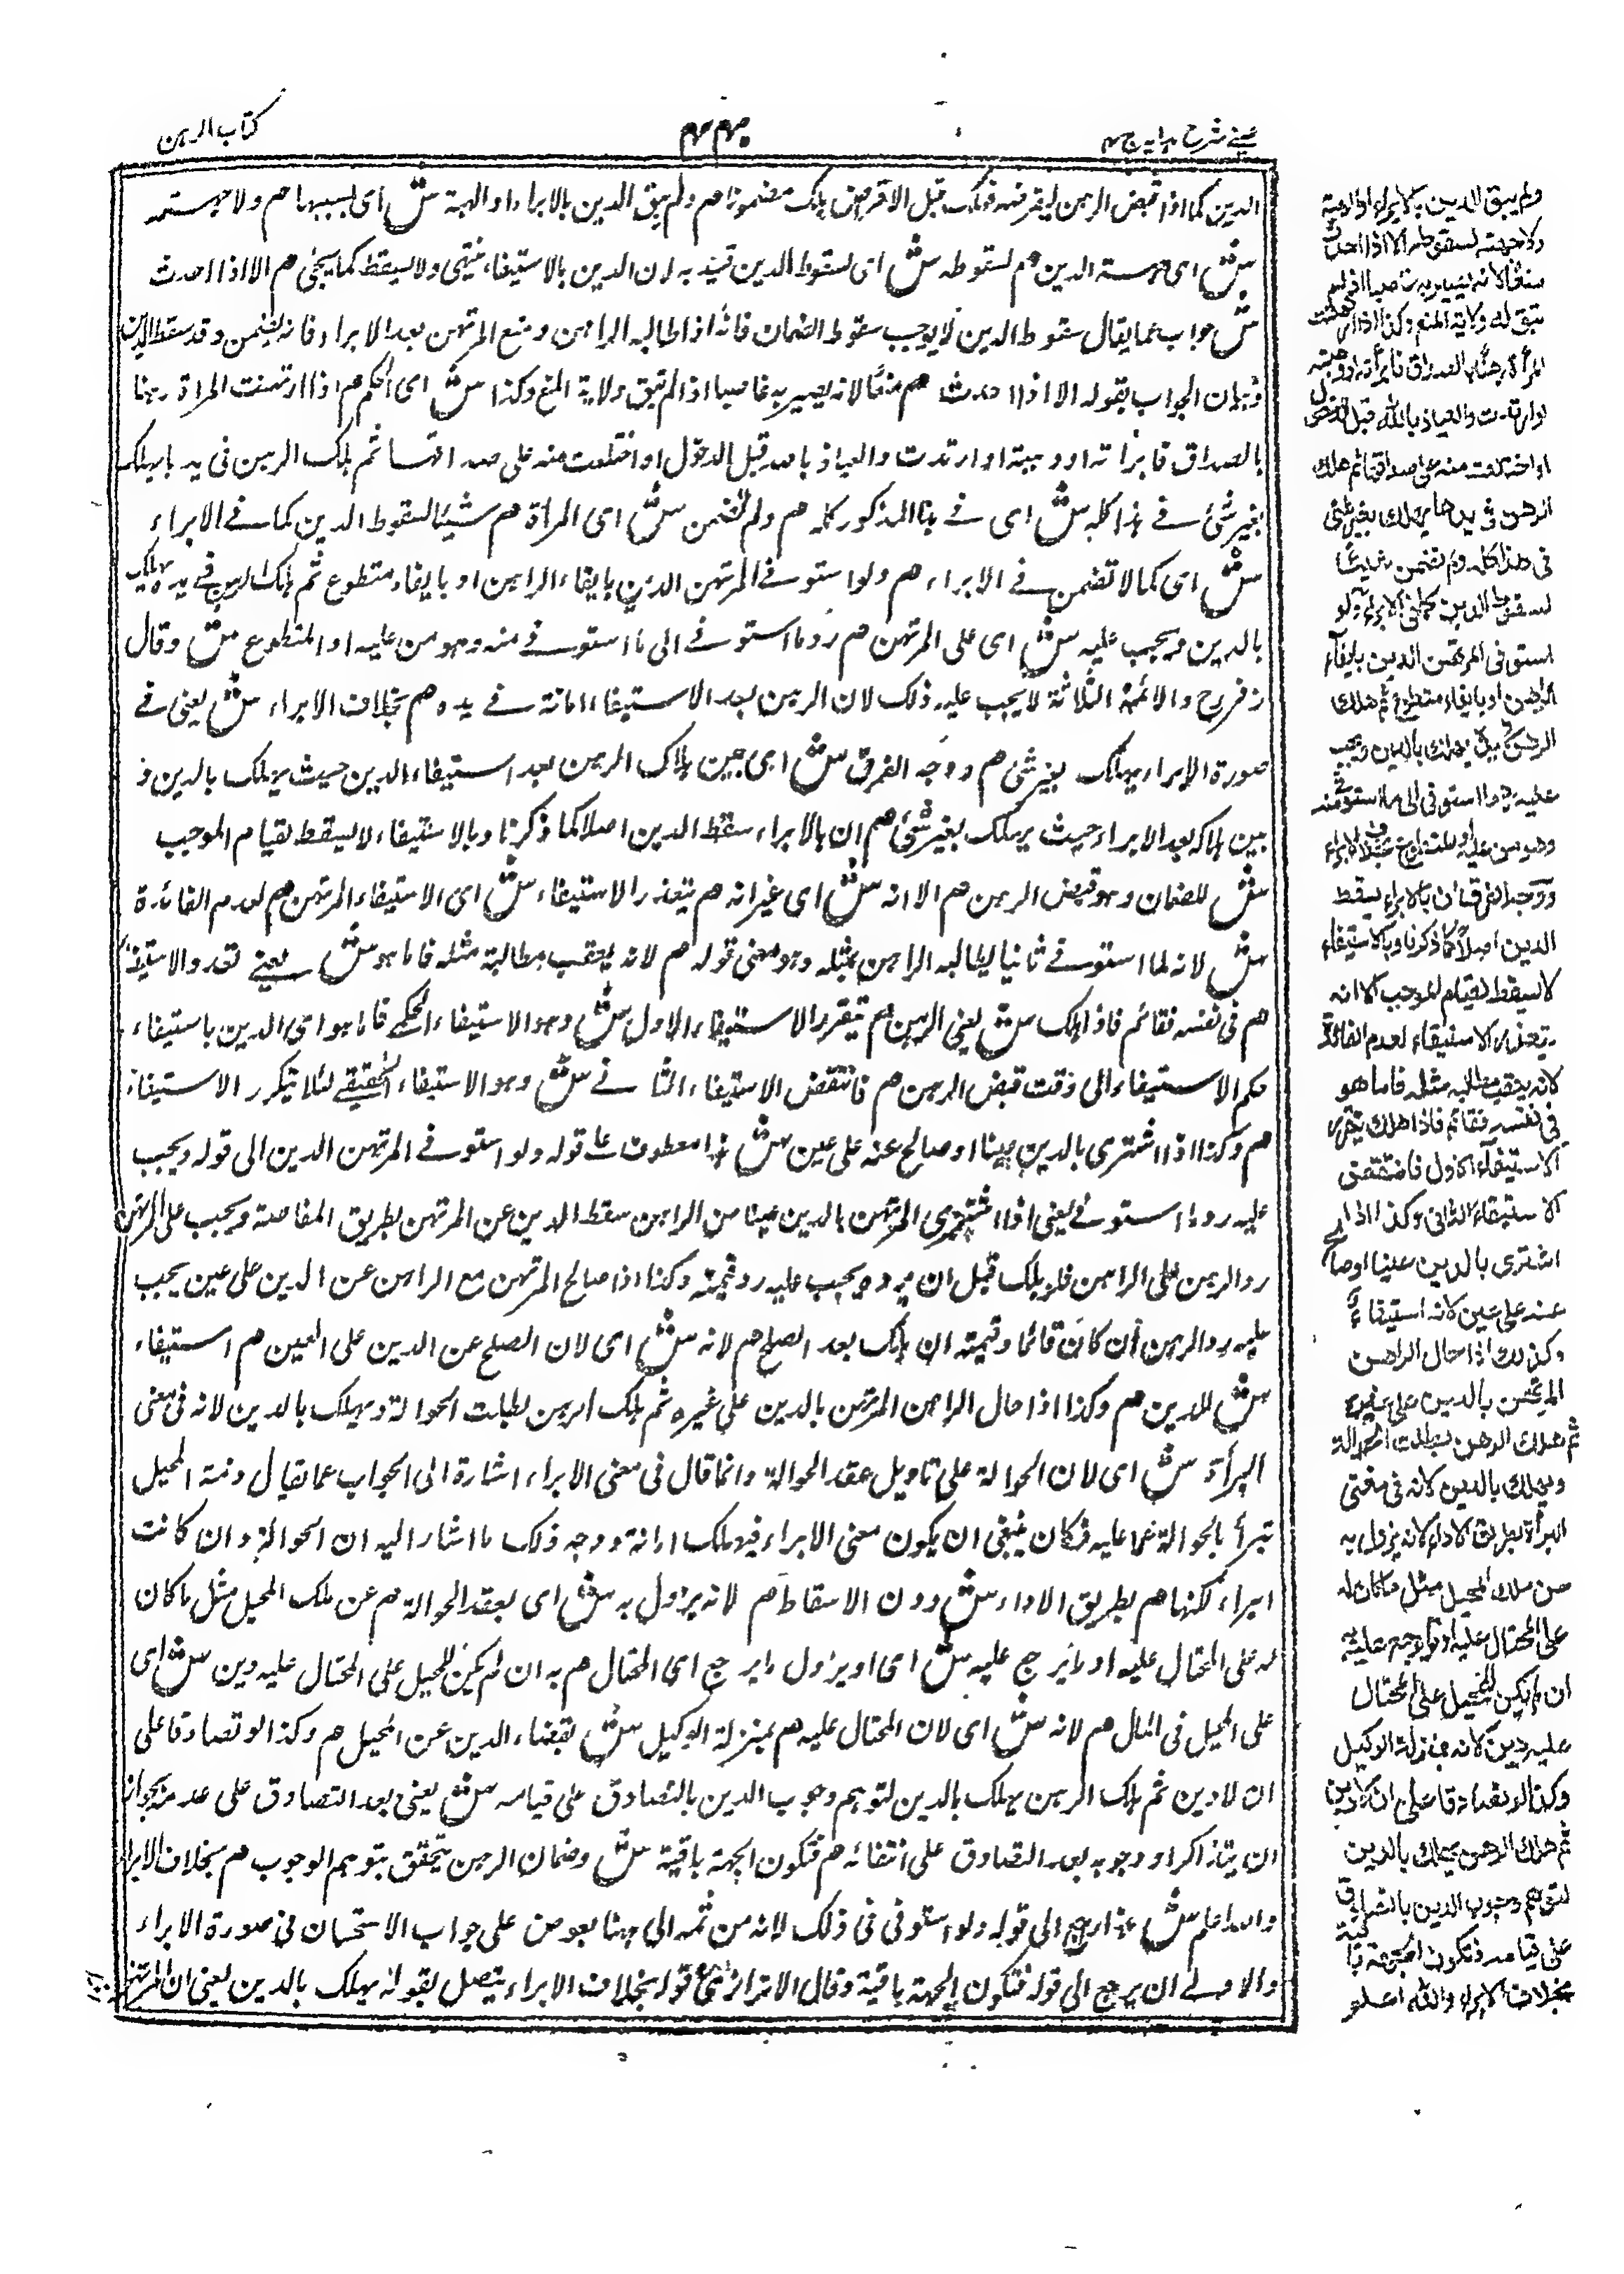 عینے شرح ہدایہ ج ٤
٤٤٣
کتاب الرہن
الدین کما اذا قبض الرہن لیقرضه فہلک قبل الاقراض یہلک مضمونا هم ولم یبق الدین بالابراء او الہبة ش ای بسببہا هم ولا جہته
ش ای جہة الدین هم لسقوطه ش ای لسقوط الدین قید به لان الدین بالاستیفاء ینتہی ولا یسقط کما یجئ هم الا اذا احدث
ش جواب عما یقال سقوط الدین لا یوجب سقوط الضمان فانه اذا طالبه الراہن ومنع المرتہن بعد الابراء فانه یضمن وقد سقط الدین
وبیان الجواب بقوله الا اذا احدث هم منعا لانه یصیر به غاصبا اذ لم تبق ولایة المنع وکذا ش ای الحکم هم اذا ارتہنت المراة رہنا
بالصداق فابرأته او وہبته او ارتدت والعیاذ بالله قبل الدخول او اختلعت منه علی صداقہا ثم ہلک الرہن فی یدہا یہلک
بغیر شئ فے ہذا کله ش ای فے ہذا المذکور کله هم ولم تضمن ش ای المرأة هم شیئا لسقوط الدین کما فے الابراء
ش ای کما لا تضمن فے الابراء هم ولو استوفے المرتہن الدین بایفاء الراہن او بایفاء متطوع ثم ہلک الرہن فے یده یہلک
بالدین ویجب علیه ش ای علی المرتہن هم رد ما استوفے الی ما استوفے منه وہو من علیه او المتطوع ش وقال
زفر رح والائمة الثلاثة لا یجب علیه ذلک لان الرہن بعد الاستیفاء امانة فے یده هم بخلاف الابراء ش یعنی فے
صورة الابراء یہلک بغیر شئ هم ووجه الفرق ش ای بین ہلاک الرہن بعد استیفاء الدین حیث یہلک بالدین و
بین ہلاکه بعد الابراء حیث یہلک بغیر شئ هم ان بالابراء سقط الدین اصلا کما ذکرنا وبالاستیفاء لا یسقط لقیام الموجب
ش للضمان وہو قبض الرہن هم الا انه ش ای غیر انه هم یتعذر الاستیفاء ش ای الاستیفاء المرتہن هم لعدم الفائدة
ش لانه لما استوفے ثانیا یطالبه الراہن بمثله وہو معنی قوله هم لانه یعقب مطالبة مثله فاما ہو ش یعنے تعذر الاستیفاء
هم فی نفسه فقائم فاذا ہلک ش یعنی الرہن هم یتقرر الاستیفاء الاول ش وہو الاستیفاء الحکمے فاما ہو ای الدین باستیفاء
حکم الاستیفاء الی وقت قبض الرہن هم فانتقض الاستیفاء الثانے ش وہو الاستیفاء الحقیقے لئلا یتکرر الاستیفاء
هم وکذا اذا اشتری بالدین عینا او صالح عنه علی عین ش ہذا معطوف علے قوله ولو استوفے المرتہن الدین الی قوله ویجب
علیه رد ما استوفے یعنی اذا اشتری المرتہن بالدین عینا من الراہن سقط الدین عن المرتہن بطریق المقاصة ویجب علی المرتہن
رد الرہن علی الراہن فلو ہلک قبل ان یرده یجب علیه رد قیمته وکذا اذا صالح المرتہن مع الراہن عن الدین علی عین یجب
علیه رد الرہن ان کان قائما وقیمته ان ہلک بعد الصلح هم لانه ش ای لان الصلح عن الدین علی العین هم استیفاء
ش للدین هم وکذا اذا حال الراہن المرتہن بالدین علی غیره ثم ہلک الرہن بطلت الحوالة ویہلک بالدین لانه فی معنی
البرأة ش ای لان الحوالة علی تاویل عقد الحوالة وانما قال فی معنی الابراء اشارة الی الجواب عما یقال ذمة المحیل
تبرأ بالحوالة عما علیه فکان ینبغی ان یکون معنی الابراء فیہلک امانة ووجه ذلک ما اشار الیه ان الحوالة وان کانت
ابراء لکنہا هم بطریق الاداء ش دون الاسقاط هم لانه یزول به ش ای بعقد الحوالة هم عن ملک المحیل مثل ما کان
له علی المحتال علیه او ما یرجع علیه ش ای او یزول ما یرجع ای المحتال هم به ان لم یکن للمحیل علی المحتال علیه دین ش ای
علی المحیل فی المال هم لانه ش ای لان المحتال علیه هم بمنزلة الوکیل ش بقضاء الدین عن المحیل هم وکذا لو تصادقا علی
ان لا دین ثم ہلک الرہن یہلک بالدین لتوہم وجوب الدین بالتصادق علی قیامه ش یعنی بعد التصادق علی عدمه یجوز
ان یتذاکرا وجوبه بعد التصادق علی انتفائه هم فتکون الجہة باقیة ش وضمان الرہن یتحقق بتوہم الوجوب هم بخلاف الابراء
والله اعلم ش ہذا راجع الی قوله ولو استوفی فی ذلک لانه من ثمه الی ہہنا بعوض علی جواب الاستحسان فی صورة الابراء
والاولے ان یرجع الی قوله فتکون الجہة باقیة وقال الاترازی قوله بخلاف الابراء یتصل بقوله یہلک بالدین یعنی ان المرتہن
ولم یبق الدین بالابراء او الہبة
ولا جہته لسقوطه الا اذا احدث
منعا لانه یصیر به غاصبا اذ لم
تبق له ولایة المنع وکذا اذا ارتہنت
المرأة رہنا بالصداق فابرأته او وہبته
او ارتدت والعیاذ بالله قبل الدخول
او اختلعت منه علی صداقہا ثم ہلک
الرہن فی یدہا یہلک بغیر شئ
فی ہذا کله ولم تضمن شیئا
لسقوط الدین کما فی الابراء ولو
استوفی المرتہن الدین بایفاء
الراہن او بایفاء متطوع ثم ہلک
الرہن فی یده یہلک بالدین ویجب
علیه رد ما استوفی الی ما استوفی منه
وہو من علیه او المتطوع بخلاف الابراء
ووجه الفرق ان بالابراء یسقط
الدین اصلا کما ذکرنا وبالاستیفاء
لا یسقط لقیام الموجب الا انه
یتعذر الاستیفاء لعدم الفائدة
لانه یعقب مطالبة مثله فاما هو
فی نفسه فقائم فاذا هلک یتقرر
الاستیفاء الاول فانتقض
الاستیفاء الثانی وکذا اذا
اشتری بالدین عینا او صالح
عنه علی عین لانه استیفاء
وکذلک اذا حال الراهن
المرتهن بالدین علی غیره
ثم هلک الرهن بطلت الحوالة
ویهلک بالدین لانه فی معنی
البرأة بطریق الاداء لانه یزول به
عن ملک المحیل مثل ما کان له
علی المحتال علیه او ما یرجع علیه به
ان لم یکن للمحیل علی المحتال
علیه دین لانه بمنزلة الوکیل
وکذا لو تصادقا علی ان لا دین
ثم هلک الرهن یهلک بالدین
لتوهم وجوب الدین بالتصادق
علی قیامه فتکون الجهة باقیة
بخلاف الابراء والله اعلم